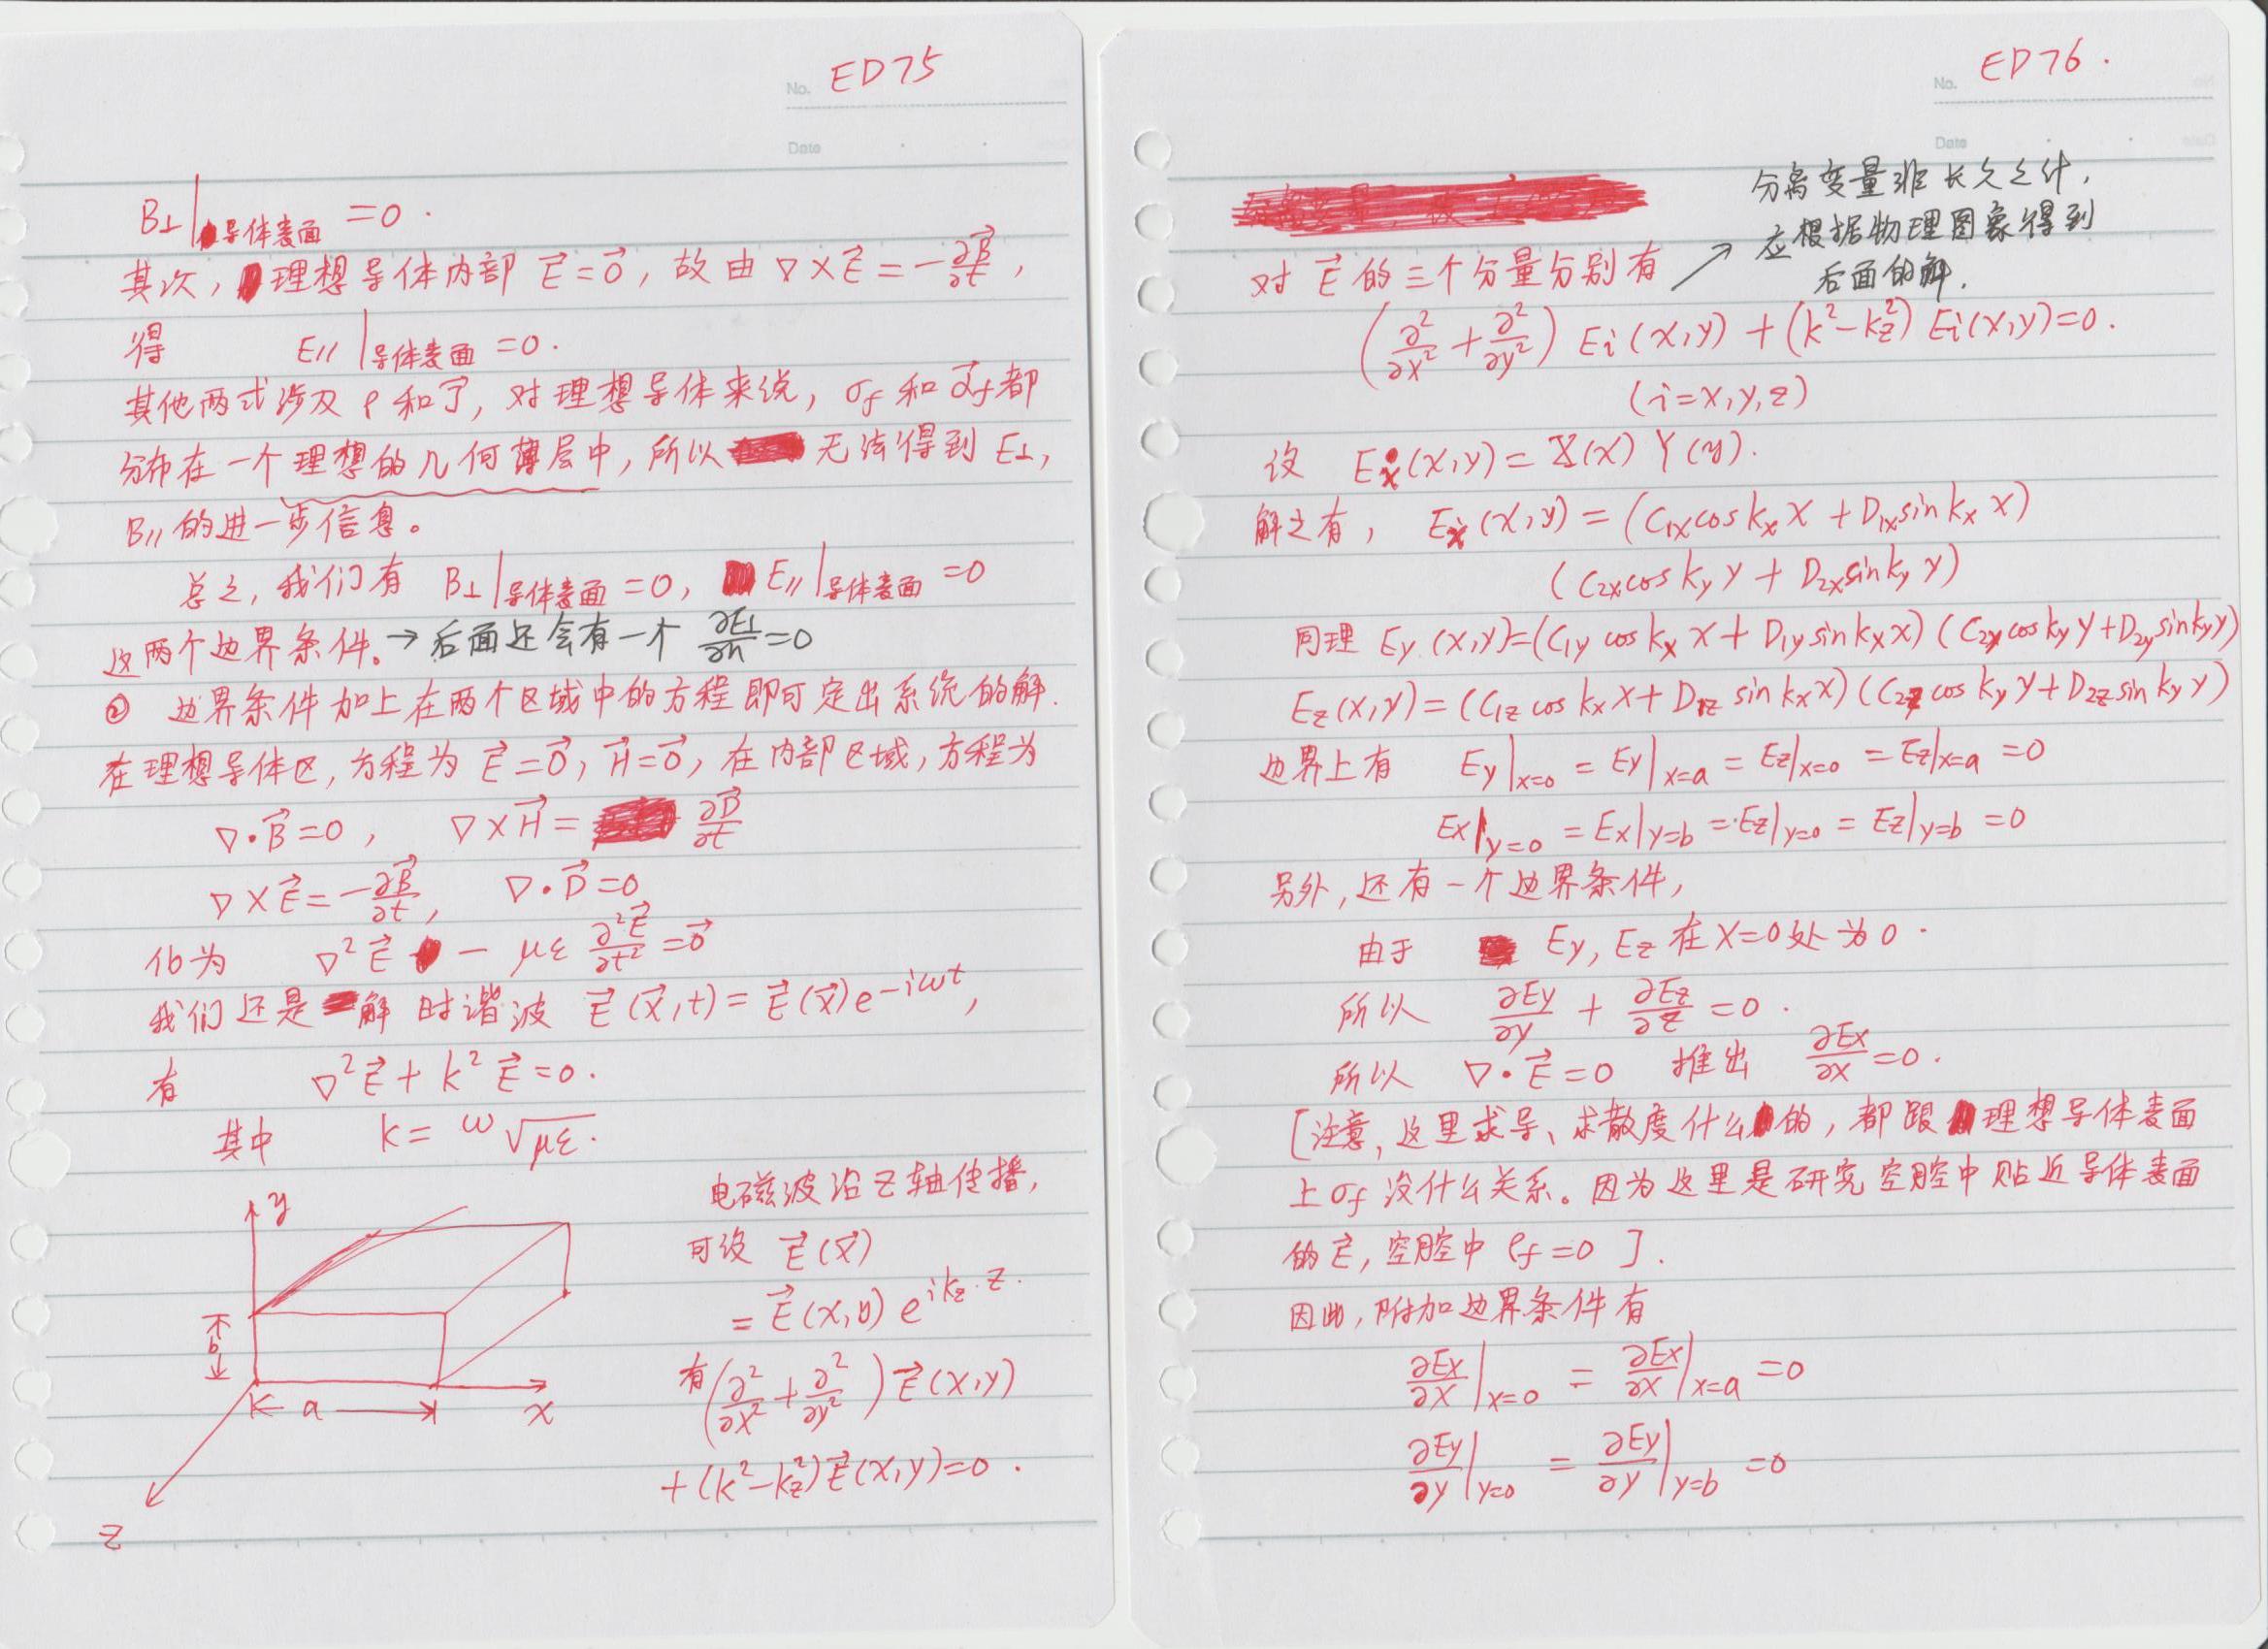 No. ED75
Date
B⊥|导体表面 = 0.
其次，理想导体内部 E⃗=0⃗，故由 ∇×E⃗ = -∂B⃗/∂t，
得 E// |导体表面 = 0.
其他两式涉及 ρ 和 J⃗，对理想导体来说，σf 和 α⃗f 都
分布在一个理想的几何薄层中，所以 无法得到 E⊥，
B// 的进一步信息。
总之，我们有 B⊥|导体表面 = 0， E//|导体表面 = 0
这两个边界条件。→ 后面还会有一个 ∂E⊥/∂n = 0
② 边界条件加上在两个区域中的方程即可定出系统的解.
在理想导体区，方程为 E⃗=0⃗，H⃗=0⃗，在内部区域，方程为
∇·B⃗=0， ∇×H⃗ = ∂D⃗/∂t
∇×E⃗ = -∂B⃗/∂t， ∇·D⃗=0
化为 ∇²E⃗ - με ∂²E⃗/∂t² = 0⃗
我们还是解时谐波 E⃗(x⃗,t) = E⃗(x⃗)e^{-iωt}，
有 ∇²E⃗ + k²E⃗ = 0.
其中 k = ω√με.
y
b
a
x
z
电磁波沿z轴传播，
可设 E⃗(x⃗)
= E⃗(x,y) e^{ikz·z}.
有(∂²/∂x² + ∂²/∂y²) E⃗(x,y)
+(k²-kz²)E⃗(x,y)=0.
No. ED76.
Date
分离变量非长久之计，
应根据物理图象得到
后面的解.
对 E⃗ 的三个分量分别有 ↗
(∂²/∂x² + ∂²/∂y²) Ei(x,y) + (k²-kz²) Ei(x,y)=0.
(i=x,y,z)
设 Ex(x,y) = X(x) Y(y).
解之有， Ex(x,y) = (C1x cos kx x + D1x sin kx x)
(C2x cos ky y + D2x sin ky y)
同理 Ey(x,y)=(C1y cos kx x + D1y sin kx x)(C2y cos ky y + D2y sin ky y)
Ez(x,y) = (C1z cos kx x + D1z sin kx x)(C2z cos ky y + D2z sin ky y)
边界上有 Ey|x=0 = Ey|x=a = Ez|x=0 = Ez|x=a = 0
Ex|y=0 = Ex|y=b = Ez|y=0 = Ez|y=b = 0
另外，还有一个边界条件，
由于 Ey, Ez 在 x=0 处为 0.
所以 ∂Ey/∂y + ∂Ez/∂z = 0.
所以 ∇·E⃗=0 推出 ∂Ex/∂x=0.
[注意，这里求导、求散度什么的，都跟理想导体表面
上σf 没什么关系。因为这里是研究空腔中贴近导体表面
的E⃗，空腔中 ρf=0 ].
因此，附加边界条件有
∂Ex/∂x|x=0 = ∂Ex/∂x|x=a = 0
∂Ey/∂y|y=0 = ∂Ey/∂y|y=b = 0